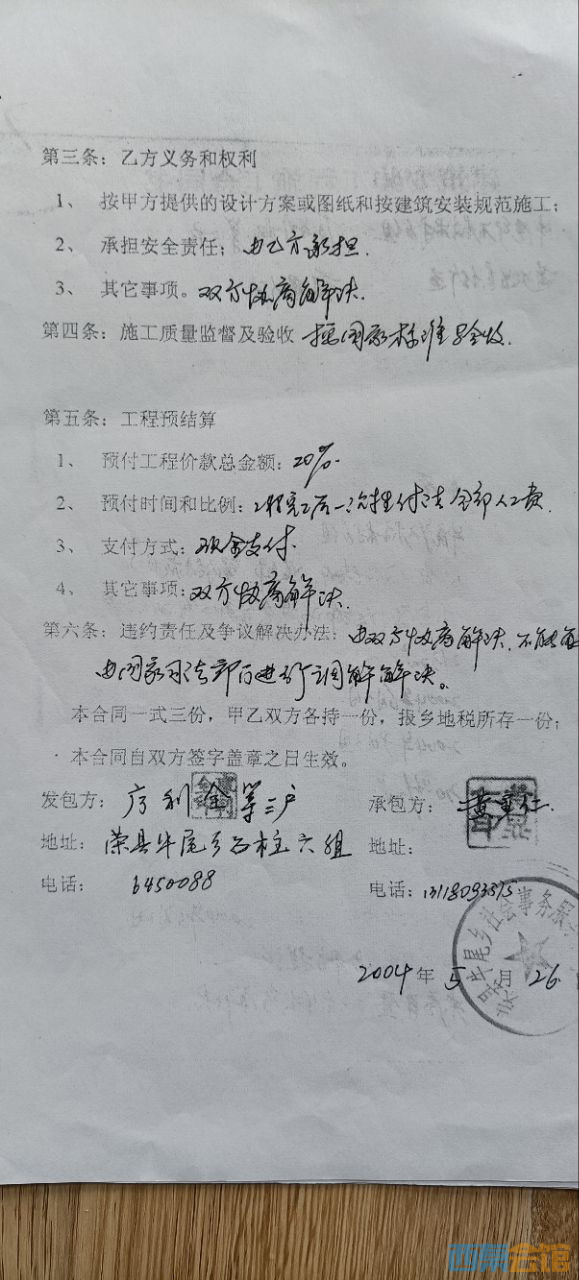 第三条：乙方义务和权利
1、 按甲方提供的设计方案或图纸和按建筑安装规范施工；
2、 承担安全责任；由乙方承担.
3、 其它事项。双方协商解决.
第四条：施工质量监督及验收 按国家标准验收.
第五条：工程预结算
1、 预付工程价款总金额：20%.
2、 预付时间和比例：工程完工后一次性付清全部人工费.
3、 支付方式：现金支付.
4、 其它事项：双方协商解决.
第六条：违约责任及争议解决办法：由双方协商解决.不能
由国家司法部门进行调解解决。
本合同一式三份，甲乙双方各持一份，报乡地税所存一份；
本合同自双方签字盖章之日生效。
发包方： 利金等三户
承包方：
地址：荣县牛尾乡石柱六组
地址：
电话： 6450088
电话：
牛尾乡社会事务
2004年5月26
西祠会馆